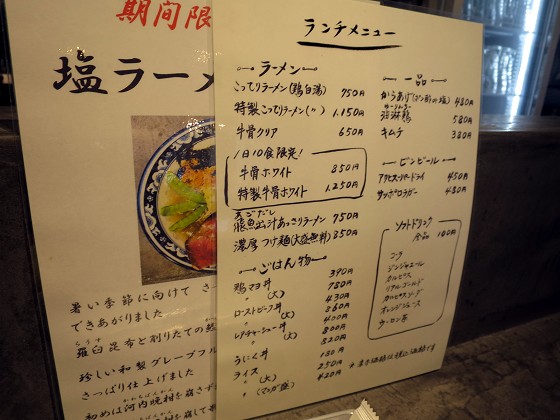 期間限
塩ラーメ
暑い季節に向けて さっ
できあがりました
羅臼昆布と削りたての
珍しい和製グレープフル
さっぱり仕上げました
初めは河内晩柑を崩さず
ランチメニュー
ラーメン
こってりラーメン(鶏白湯) 750円
特製こってりラーメン(〃) 1,150円
牛骨クリア 650円
1日10食限定!
牛骨ホワイト 850円
特製牛骨ホワイト 1,250円
あごだし
飛魚出汁あっさりラーメン 750円
濃厚つけ麺(大盛無料) 850円
ごはん物
鶏マヨ丼 390円
〃 (大) 780円
ローストビーフ丼 430円
〃 (大) 860円
レアチャーシュー丼 400円
〃 (大) 800円
うにく丼 520円
ライス 180円
〃 (大) 250円
〃 (マンガ盛) 420円
一品
からあげ 480円
580円
キムチ 380円
ビンビール
アサヒスーパードライ 450円
サッポロラガー 480円
ソフトドリンク
各品 180円
コーラ
ジンジャエール
カルピス
リアルゴールド
カルピスソーダ
オレンジジュース
ウーロン茶
※表示価格は税込価格です